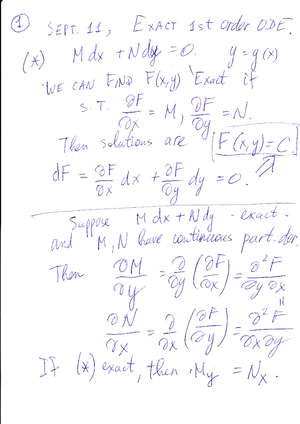 ① SEPT. 11, EXACT 1st order ODE.
(*) M dx + N dy = 0. y = y(x)
WE CAN FIND F(x,y) 'Exact if
s.t. ∂F/∂x = M, ∂F/∂y = N.
Then solutions are F(x,y) = C
dF = ∂F/∂x dx + ∂F/∂y dy = 0.
Suppose M dx + N dy - exact -
and M, N have continuous part. der.
Then ∂M/∂y = ∂/∂y (∂F/∂x) = ∂²F/∂y∂x
||
∂N/∂x = ∂/∂x (∂F/∂y) = ∂²F/∂x∂y
If (*) exact, then My = Nx.